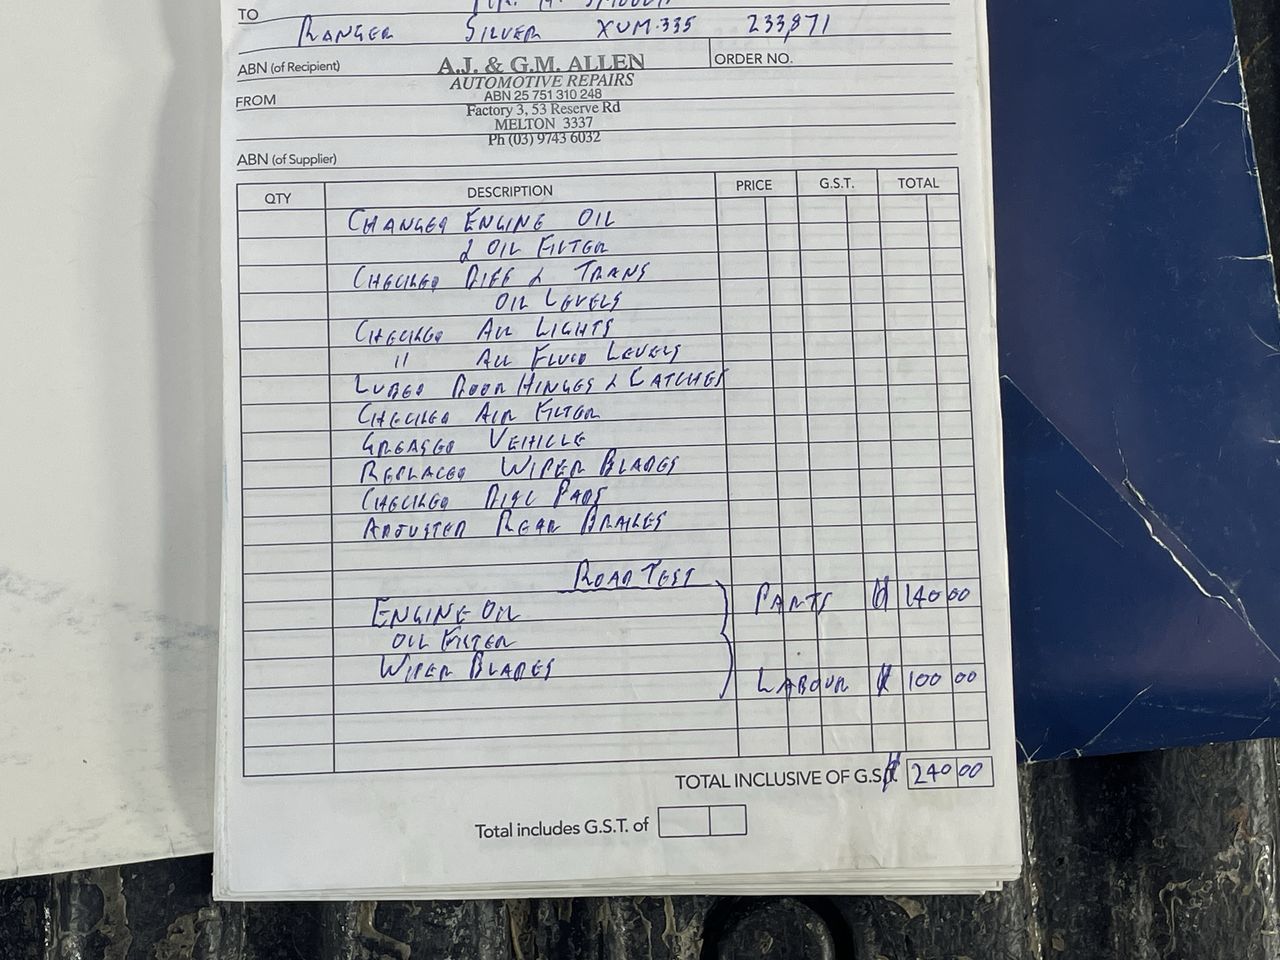 TO
RANGER SILVER XUM·335 233,871
ABN (of Recipient)
A.J. & G.M. ALLEN
ORDER NO.
AUTOMOTIVE REPAIRS
FROM
ABN 25 751 310 248
Factory 3, 53 Reserve Rd
MELTON 3337
Ph (03) 9743 6032
ABN (of Supplier)
QTY DESCRIPTION PRICE G.S.T. TOTAL
CHANGED ENGINE OIL
& OIL FILTER
CHECKED DIFF & TRANS
OIL LEVELS
CHECKED ALL LIGHTS
" ALL FLUID LEVELS
LUBED DOOR HINGES & CATCHES
CHECKED AIR FILTER
GREASED VEHICLE
REPLACED WIPER BLADES
CHECKED DISC PADS
ADJUSTED REAR BRAKES
ROAD TEST
PARTS $ 140 00
ENGINE OIL
OIL FILTER
WIPER BLADES
LABOUR $ 100 00
TOTAL INCLUSIVE OF G.S.T. $ 240 00
Total includes G.S.T. of